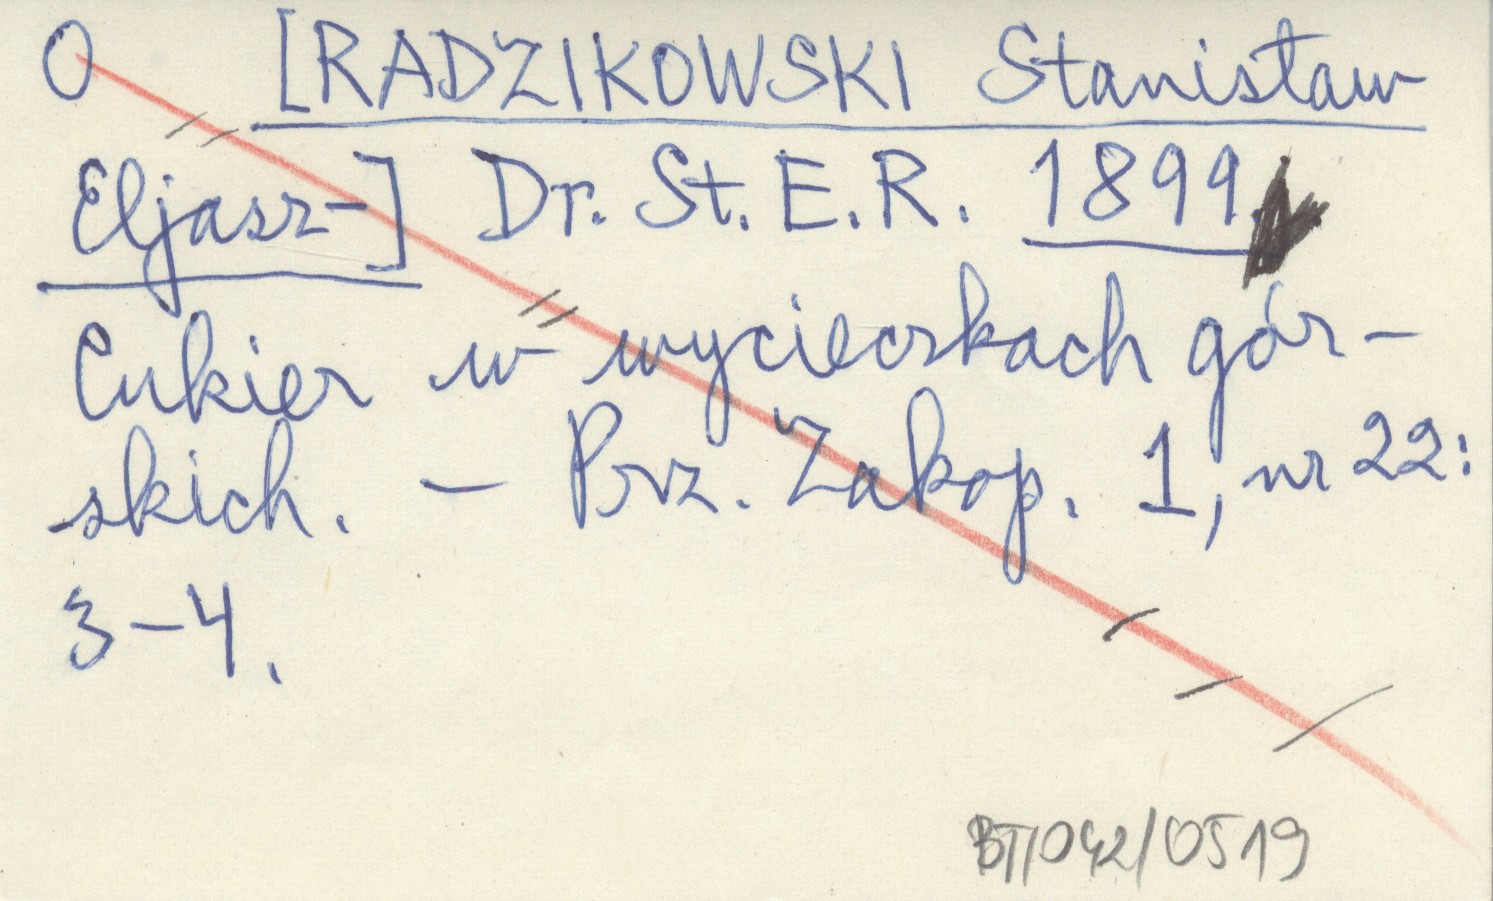 O [RADZIKOWSKI Stanisław
Eljasz-] Dr. St. E. R. 1899
Cukier w wycieczkach gór-
skich. – Prz. Zakop. 1, nr 22:
3–4.
BT/042/0519